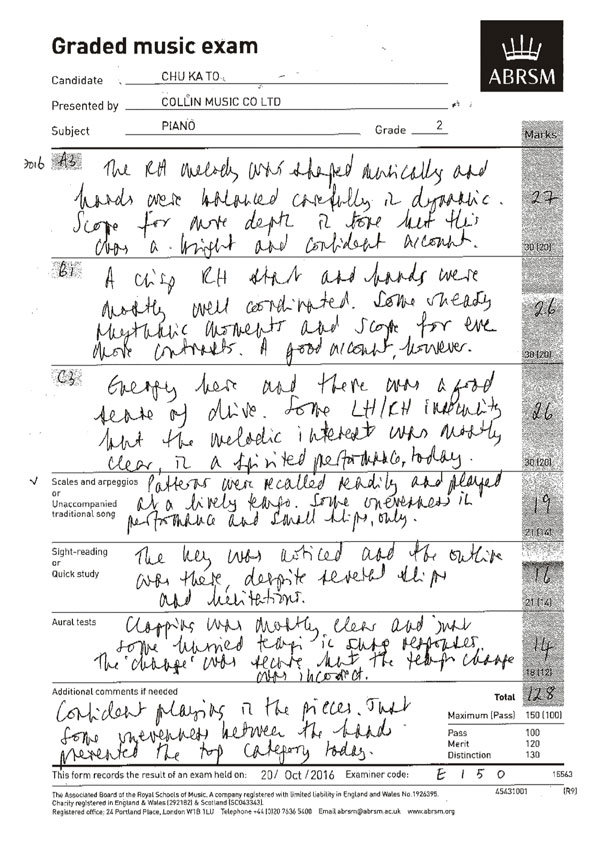 Graded music exam
ABRSM
Candidate CHU KA TO
Presented by COLLIN MUSIC CO LTD
Subject PIANO Grade 2
Marks
3016 A3 The RH melody was shaped musically and
hands were balanced carefully in dynamic.
Scope for more depth in tone but this
was a bright and confident account.
27
30 (20)
B1 A crisp RH start and hands were
mostly well coordinated. Some unsteady
rhythmic moments and scope for even
more contrasts. A good account, however.
26
30 (20)
C3 Energy here and there was a good
sense of drive. Some LH/RH
but the melodic interest was mostly
clear, in a spirited performance, today.
26
30 (20)
Scales and arpeggios
or
Unaccompanied
traditional song
Patterns were recalled readily and played
at a lively tempo. Some unevenness in
performance and small slips, only.
19
21 (14)
Sight-reading
or
Quick study
The key was noticed and the outline
was there, despite several slips
and hesitations.
16
21 (14)
Aural tests
Clapping was mostly clear and just
some hurried tempi in sung responses.
The 'change' was secure, but the tempo change
was incorrect.
14
18 (12)
Additional comments if needed
Confident playing in the pieces. Just
some unevenness between the hands
prevented the top category today.
Total 128
Maximum (Pass) 150 (100)
Pass 100
Merit 120
Distinction 130
This form records the result of an exam held on: 20/ Oct /2016 Examiner code: E 1 5 0 15563
The Associated Board of the Royal Schools of Music. A company registered with limited liability in England and Wales No. 1926395. 45431001 (R9)
Charity registered in England & Wales (292182) & Scotland (SC043343).
Registered office: 24 Portland Place, London W1B 1LU Telephone +44 (0)20 7636 5400 Email abrsm@abrsm.ac.uk www.abrsm.org